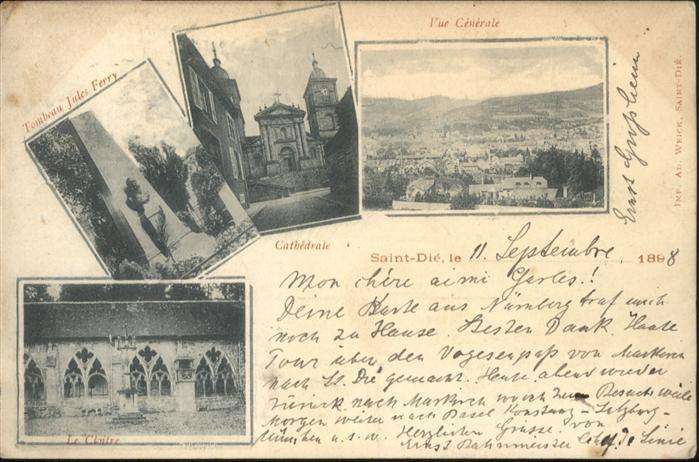 Vue Générale
Tombeau Jules Ferry
Cathédrale
Le Cloître
IMP. AD. WEICK, SAINT-DIÉ.
Saint-Dié, le 11. Septembre 1898
Mon chère ami Gerles!
Deine Karte aus Nürnberg traf mich
noch zu Hause. Besten Dank. Haate
Tour über den Vogesenpaß von Markirch
nach St. Dié gemacht. Heute abend wieder
zurück nach Markirch wo ich zum Besuch weile
Morgen weiter nach Basel Konstanz -
München u.s.w. Herzlichen Grüsse von
Ernst
Ernst